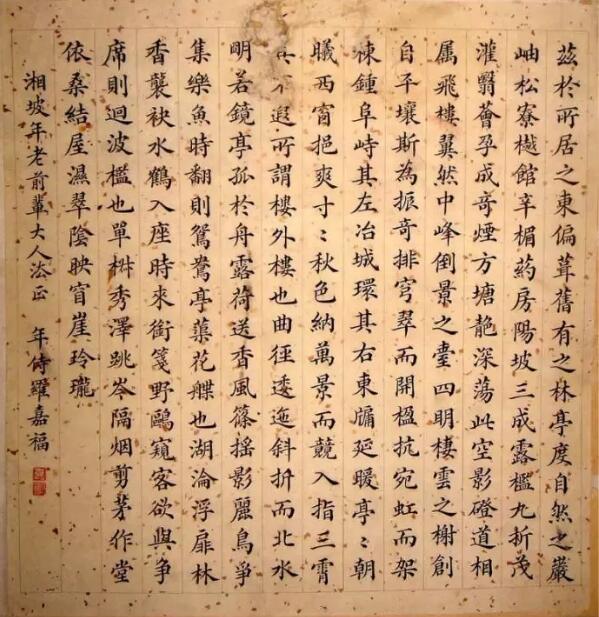 茲於所居之東偏葺舊有之林亭度自然之巖
岫松寮樾館辛楣葯房陽坡三成露檻九折茂
灌翳薈孕成奇煙方塘靘深蕩此空影磴道相
属飛樓翼然中峰倒景之臺四明棲雲之榭創
自平壤斯為振奇排穹翠而開楹抗宛虹而架
棟鍾阜峙其左冶城環其右東牖延暖亭〻朝
曦西窗挹爽寸〻秋色納萬景而競入指三霄
其不遐所謂樓外樓也曲徑逶迤斜折而北水
明若鏡亭孤於舟露荷送香風篠搖影麗鳥爭
集樂魚時翻則鴛鴦亭蕖花艓也湖淪浮扉林
香襲袂水鶴入座時來銜箋野鷗窺客欲與爭
席則迴波檻也單椒秀澤跳岑隔烟剪茅作堂
依桑結屋濕翠陰映窗崖玲瓏
湘坡年老前輩大人法正 年侍羅嘉福